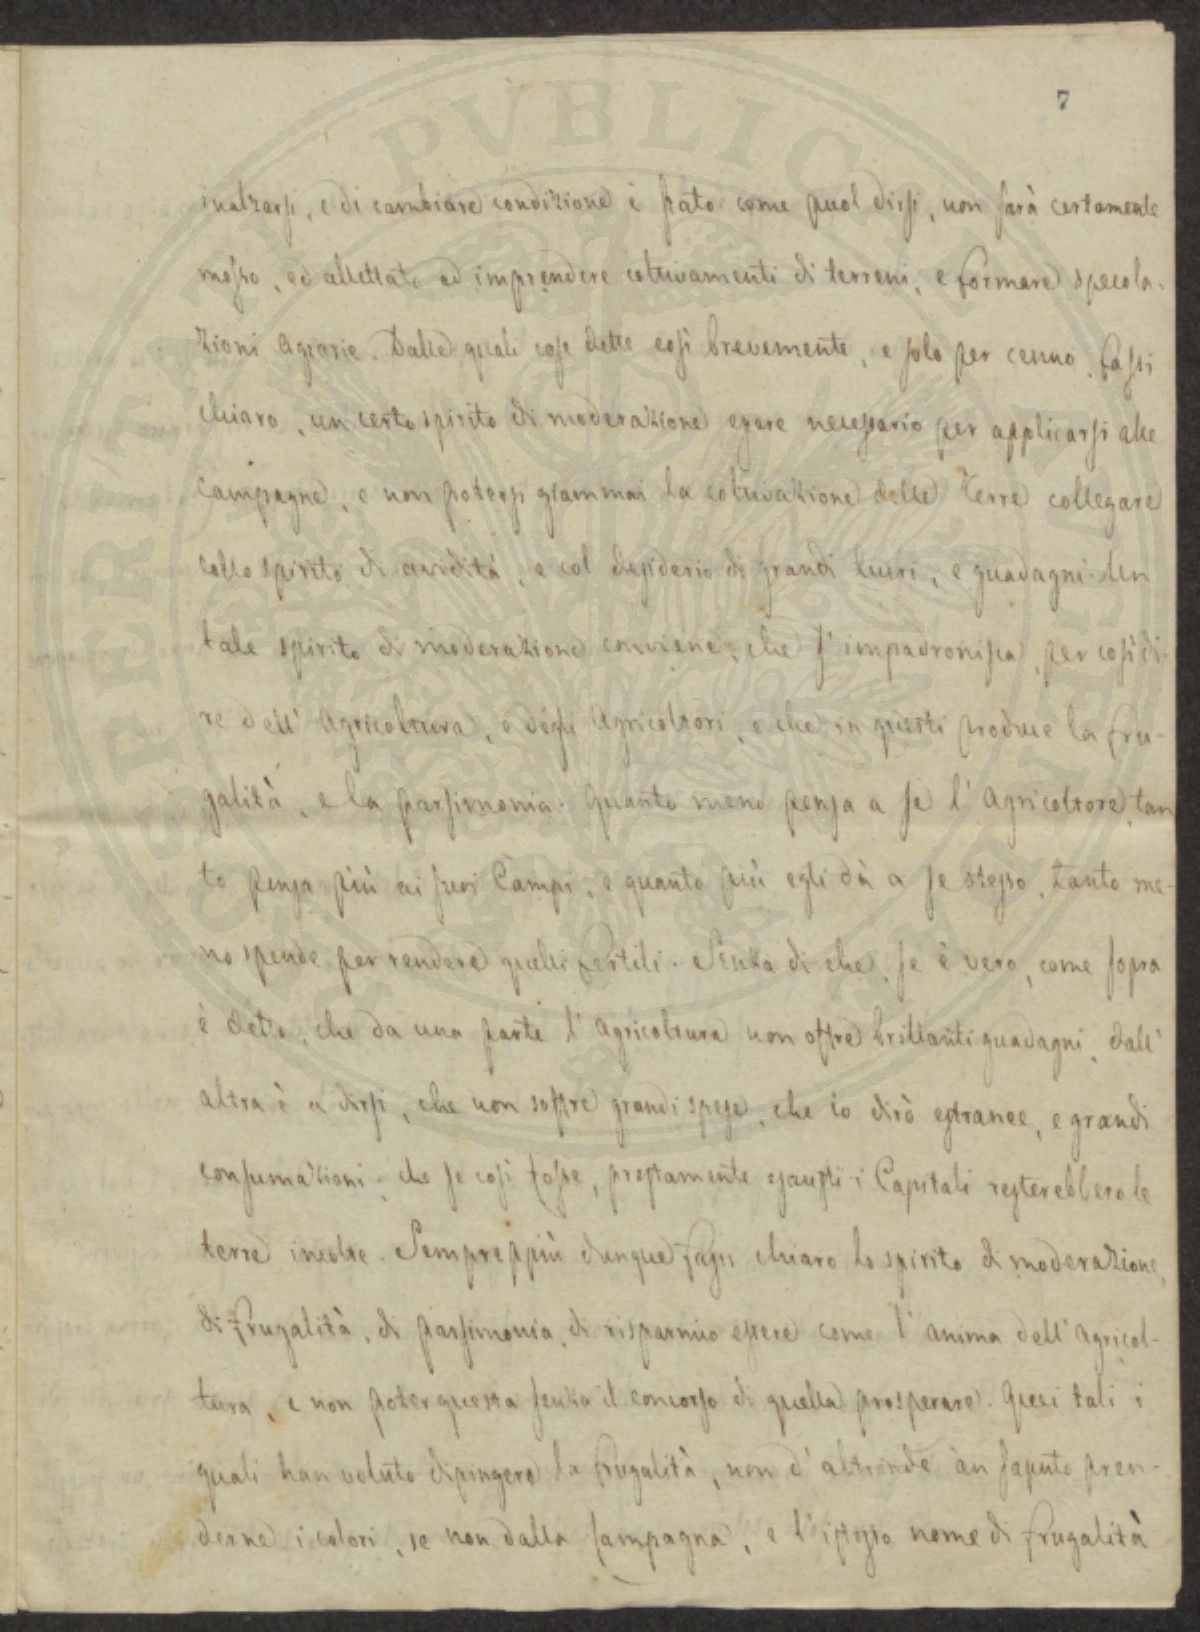 7
inalzarsi, e di cambiare condizione è stato come puol dirsi, non sarà certamente
mosso, ed allettato ad imprendere coltivamenti di terreni, e formare specola-
zioni Agrarie. Dalle quali cose dette così brevemente, e solo per cenno, fassi
chiaro, un certo spirito di moderazione essere necessario per applicarsi alle
Campagne, e non potersi giammai la coltivazione delle Terre collegare
collo spirito di avidità, e col desiderio di grandi lucri, e guadagni. Un
tale spirito di moderazione conviene, che s'impadronisca, per così di-
re dell'Agricoltura, e degli Agricoltori, e che in questi produce la fru-
galità, e la parsimonia. Quanto meno pensa a se l'Agricoltore, tan
to pensa più ai suoi Campi, e quanto più egli dà a se stesso, tanto me-
no spende per rendere quelli fertili. Senza di che, se è vero, come sopra
è detto, che da una parte l'Agricoltura non offre brillanti guadagni, dall'
altra è a dirsi, che non soffre grandi spese, che io dirò estranee, e grandi
consumazioni, che se così fosse, prestamente esausti i Capitali resterebbero le
terre incolte. Sempreppiù dunque fassi chiaro lo spirito di moderazione,
di frugalità, di parsimonia, di risparmio essere come l'anima dell'Agricol-
tura, e non poter questa senza il concorso di quella prosperare. Quei tali i
quali han voluto dipingere la frugalità, non d'altronde àn saputo pren-
derne i colori, se non dalla Campagna, e l'istesso nome di frugalità
SPERITATI PUBLICAE